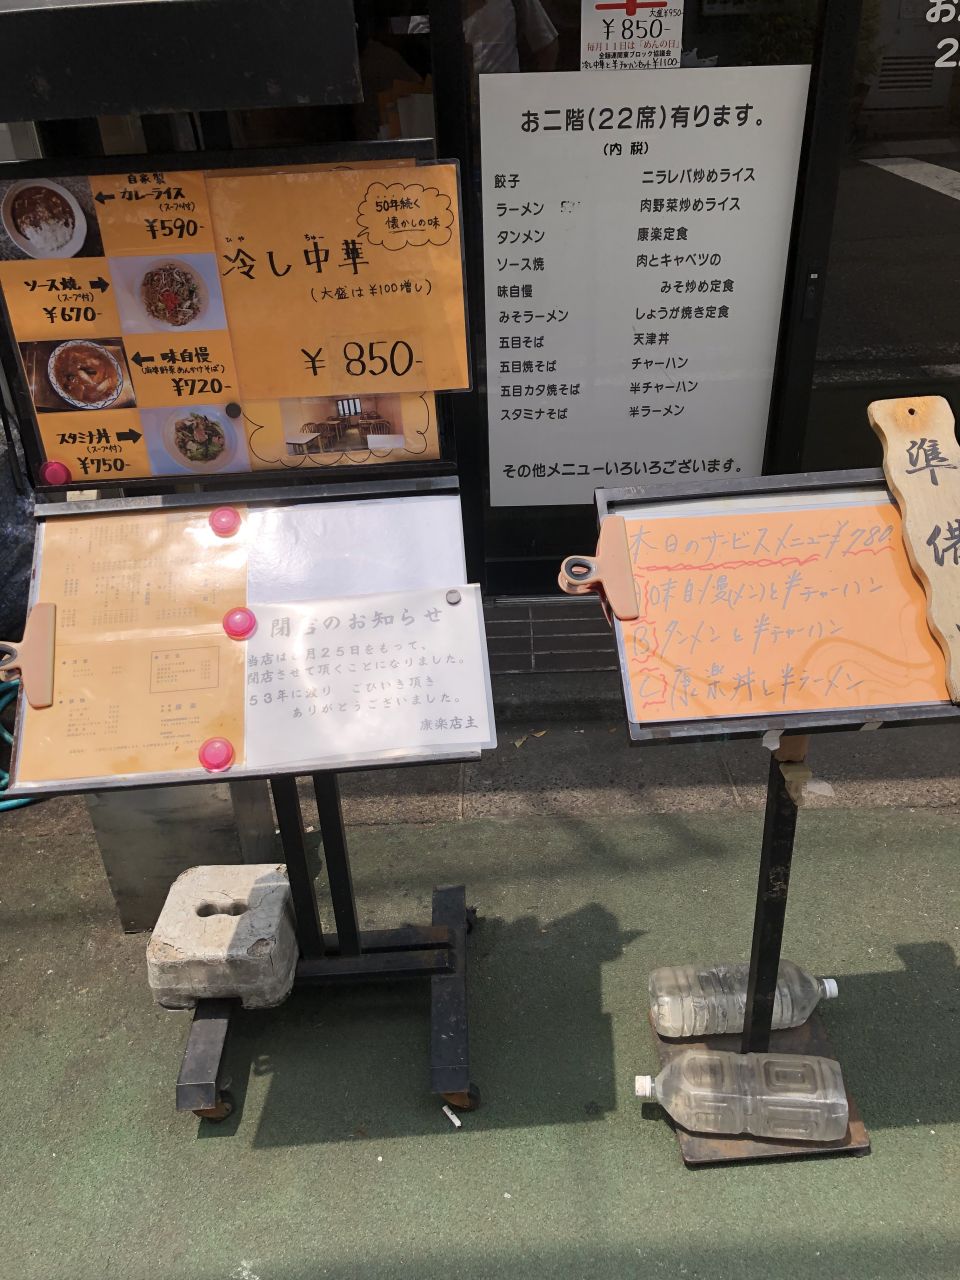 大盛¥950-
¥850-
毎月11日は「めんの日」
全麺連関東ブロック協議会
冷し中華と半チャーハンセット¥1100-
お二階(22席)有ります。
(内 税)
餃子
ラーメン
タンメン
ソース焼
味自慢
みそラーメン
五目そば
五目焼そば
五目カタ焼そば
スタミナそば
ニラレバ炒めライス
肉野菜炒めライス
康楽定食
肉とキャベツの
みそ炒め定食
しょうが焼き定食
天津丼
チャーハン
半チャーハン
半ラーメン
その他メニューいろいろございます。
自家製
カレーライス
(スープ付)
¥590-
ソース焼
(スープ付)
¥670-
味自慢
¥720-
スタミナ丼
(スープ付)
¥750-
50年続く
懐かしの味
ひや ちゅー
冷し中華
(大盛は¥100増し)
¥850-
閉店のお知らせ
当店は 月25日をもって、
閉店させて頂くことになりました。
53年に渡り ごひいき頂き
ありがとうございました。
康楽店主
本日のサービスメニュー¥780
A味自慢(メン)と半チャーハン
Bタンメンと半チャーハン
C康楽丼と半ラーメン
準備
お
2